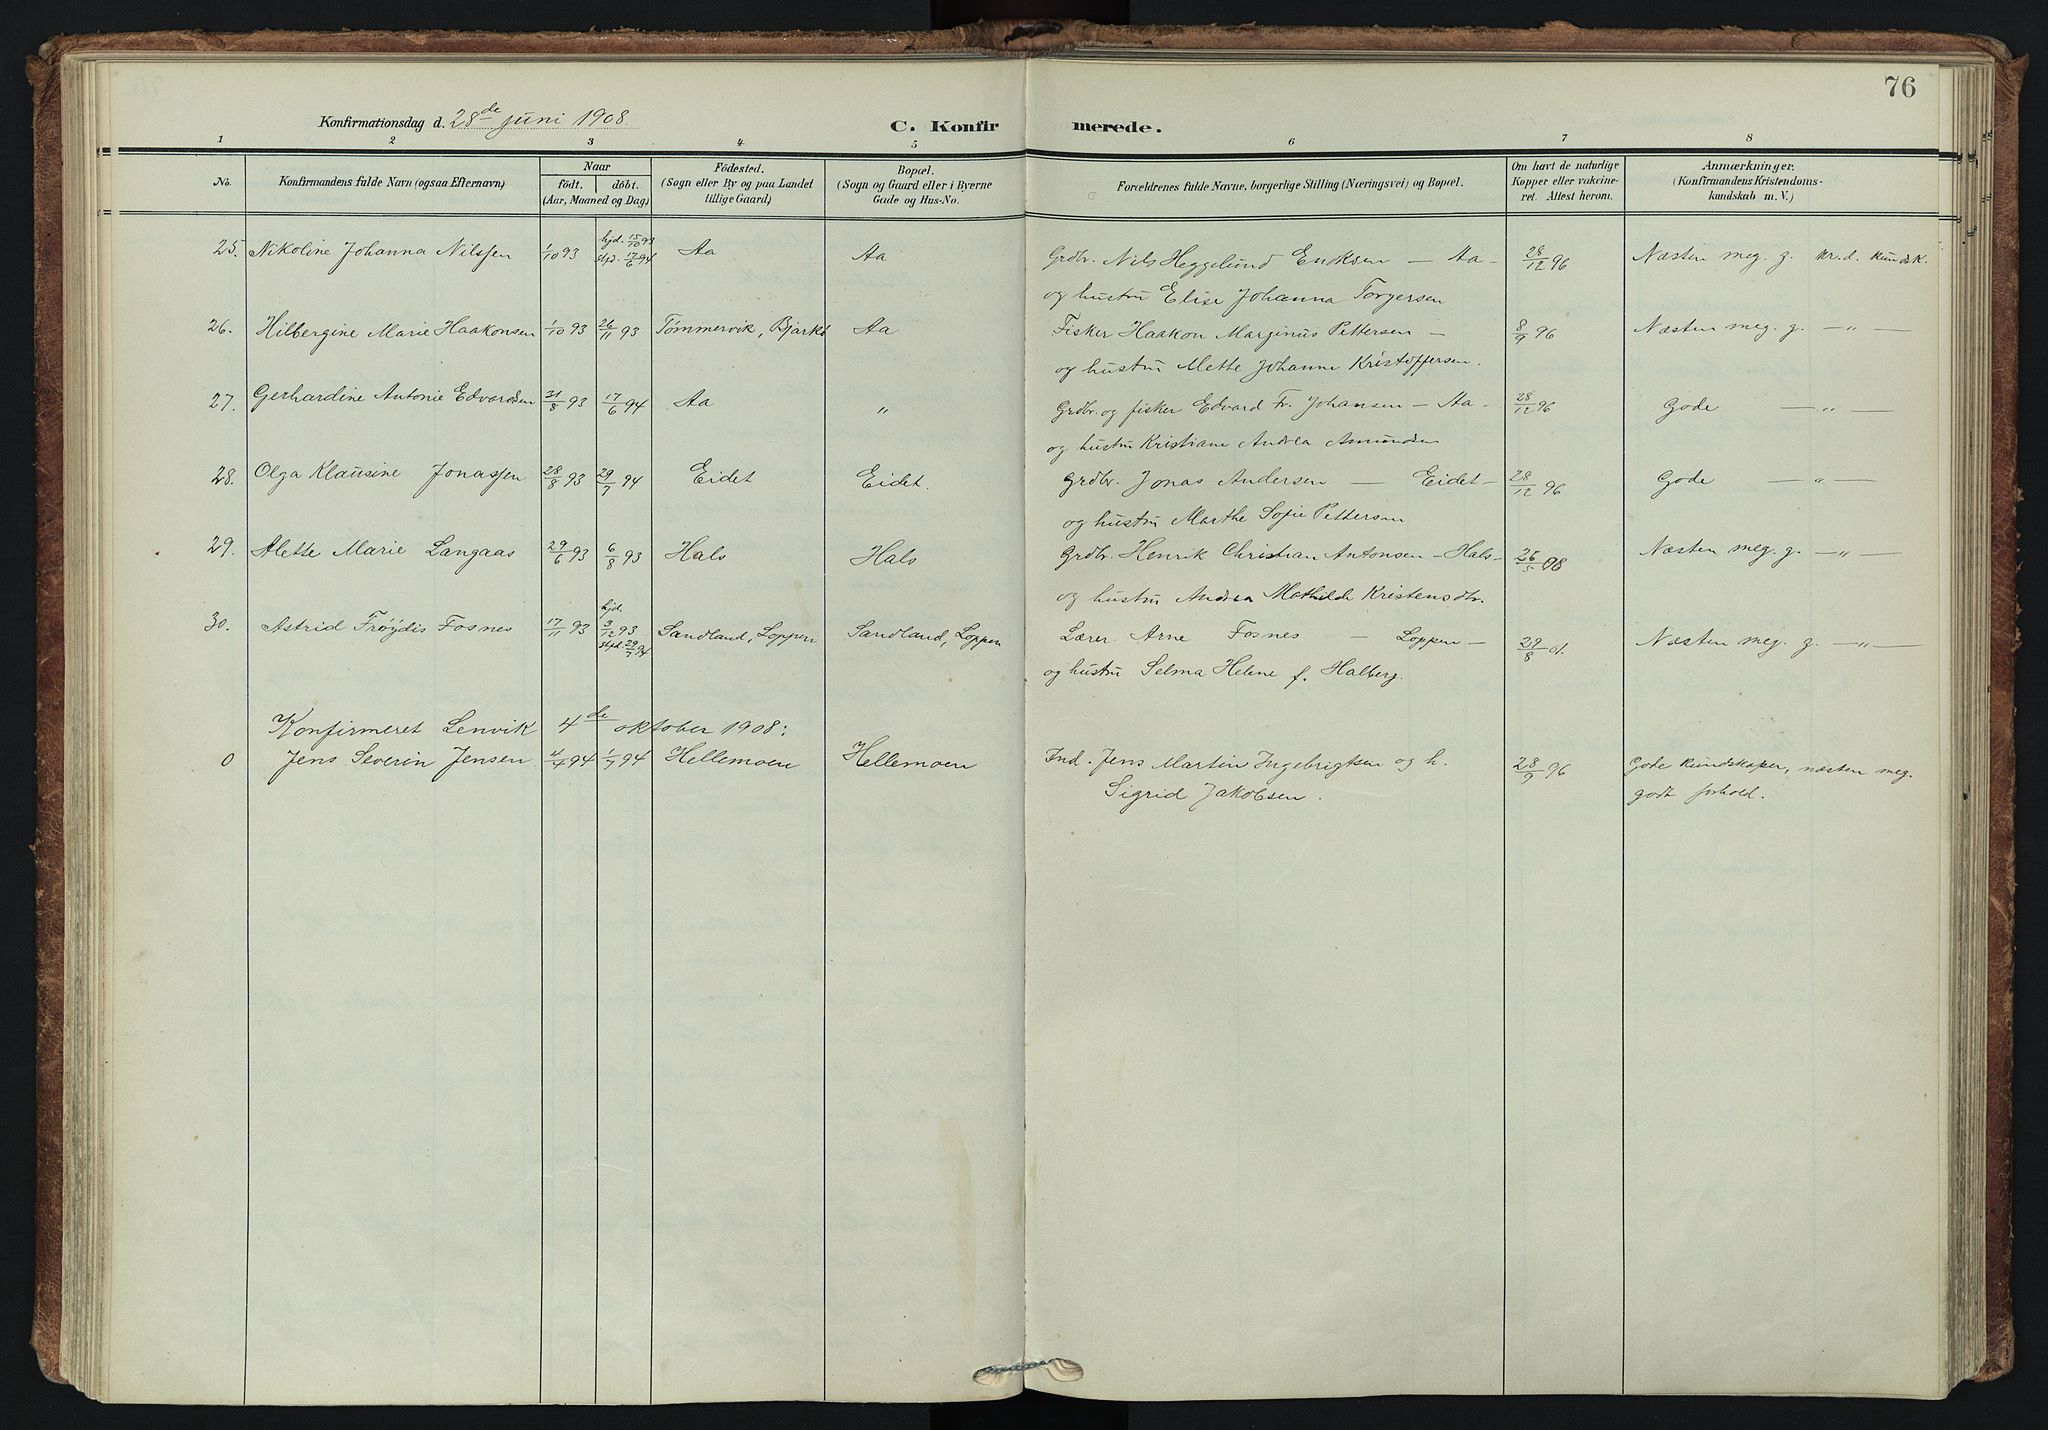 76
Konfirmationsdag d. 28de juni 1908.
C. Konfirmerede.
1 2 3 4 5 6 7 8
No.
Konfirmandens fulde Navn (ogsaa Efternavn)
Naar
födt. döbt.
(Aar, Maaned og Dag)
Födested.
(Sogn eller By og paa Landet
tillige Gaard)
Bopæl.
(Sogn og Gaard eller i Byerne
Gade og Hus-No.
Forældrenes fulde Navne, borgerlige Stilling (Næringsvei) og Bopæl.
Om havt de naturlige
Kopper eller vakcine-
ret. Attest herom.
Anmærkninger.
(Konfirmandens Kristendoms-
kundskab m. V.)
25. Nikoline Johanna Nilssen 1/10 93 hjd. 15/10 93 stfd. 17/6 94 Aa Aa Grdbr. Nils Heggelund Eriksen — Aa — 28/12 96 Næsten meg. g. kr.d. kundsk.
og hustru Elise Johanna Torgersen
26. Hilbergine Marie Haakonsen 1/10 93 26/11 93 Tømmervik, Bjarkø Aa Fisker Haakon Marginus Pettersen — 8/9 96 Næsten meg. g. — „ —
og hustru Mette Johanna Kristoffersen.
27. Gerhardine Antonie Edvardsen 31/8 93 17/6 94 Aa „ Grdbr. og fisker Edvard Fr. Johansen — Aa — 28/12 96 Gode — „ —
og hustru Kristiane Andrea Amundsen
28. Olga Klausine Jonassen 28/8 93 29/7 94 Eidet Eidet. Grdbr. Jonas Andersen — Eidet — 28/12 96 Gode — „ —
og hustru Marthe Sofie Pettersen
29. Mette Marie Langaas 29/6 93 6/8 93 Hals Hals Grdbr. Henrik Christian Antonsen — Hals — 26/5 98 Næsten meg. g. — „ —
og hustru Andrea Mathilde Kristensdtr.
30. Astrid Frøydis Fosnes 17/11 93 hjd. 3/12 93 stfd. 29/7 94 Sandland, Loppen Sandland, Loppen Lærer Arne Fosnes — Loppen — 29/8 01. Næsten meg. g. — „ —
og hustru Selma Helene f. Halberg.
Konfirmeret Lenvik 4de oktober 1908:
0 Jens Severin Jensen 4/4 94 1/7 94 Hellemoen Hellemoen Ind. Jens Martin Ingebrigtsen og h. 28/9 96 Gode kundskaper, næsten meg.
Sigrid Jakobsen. godt forhold.